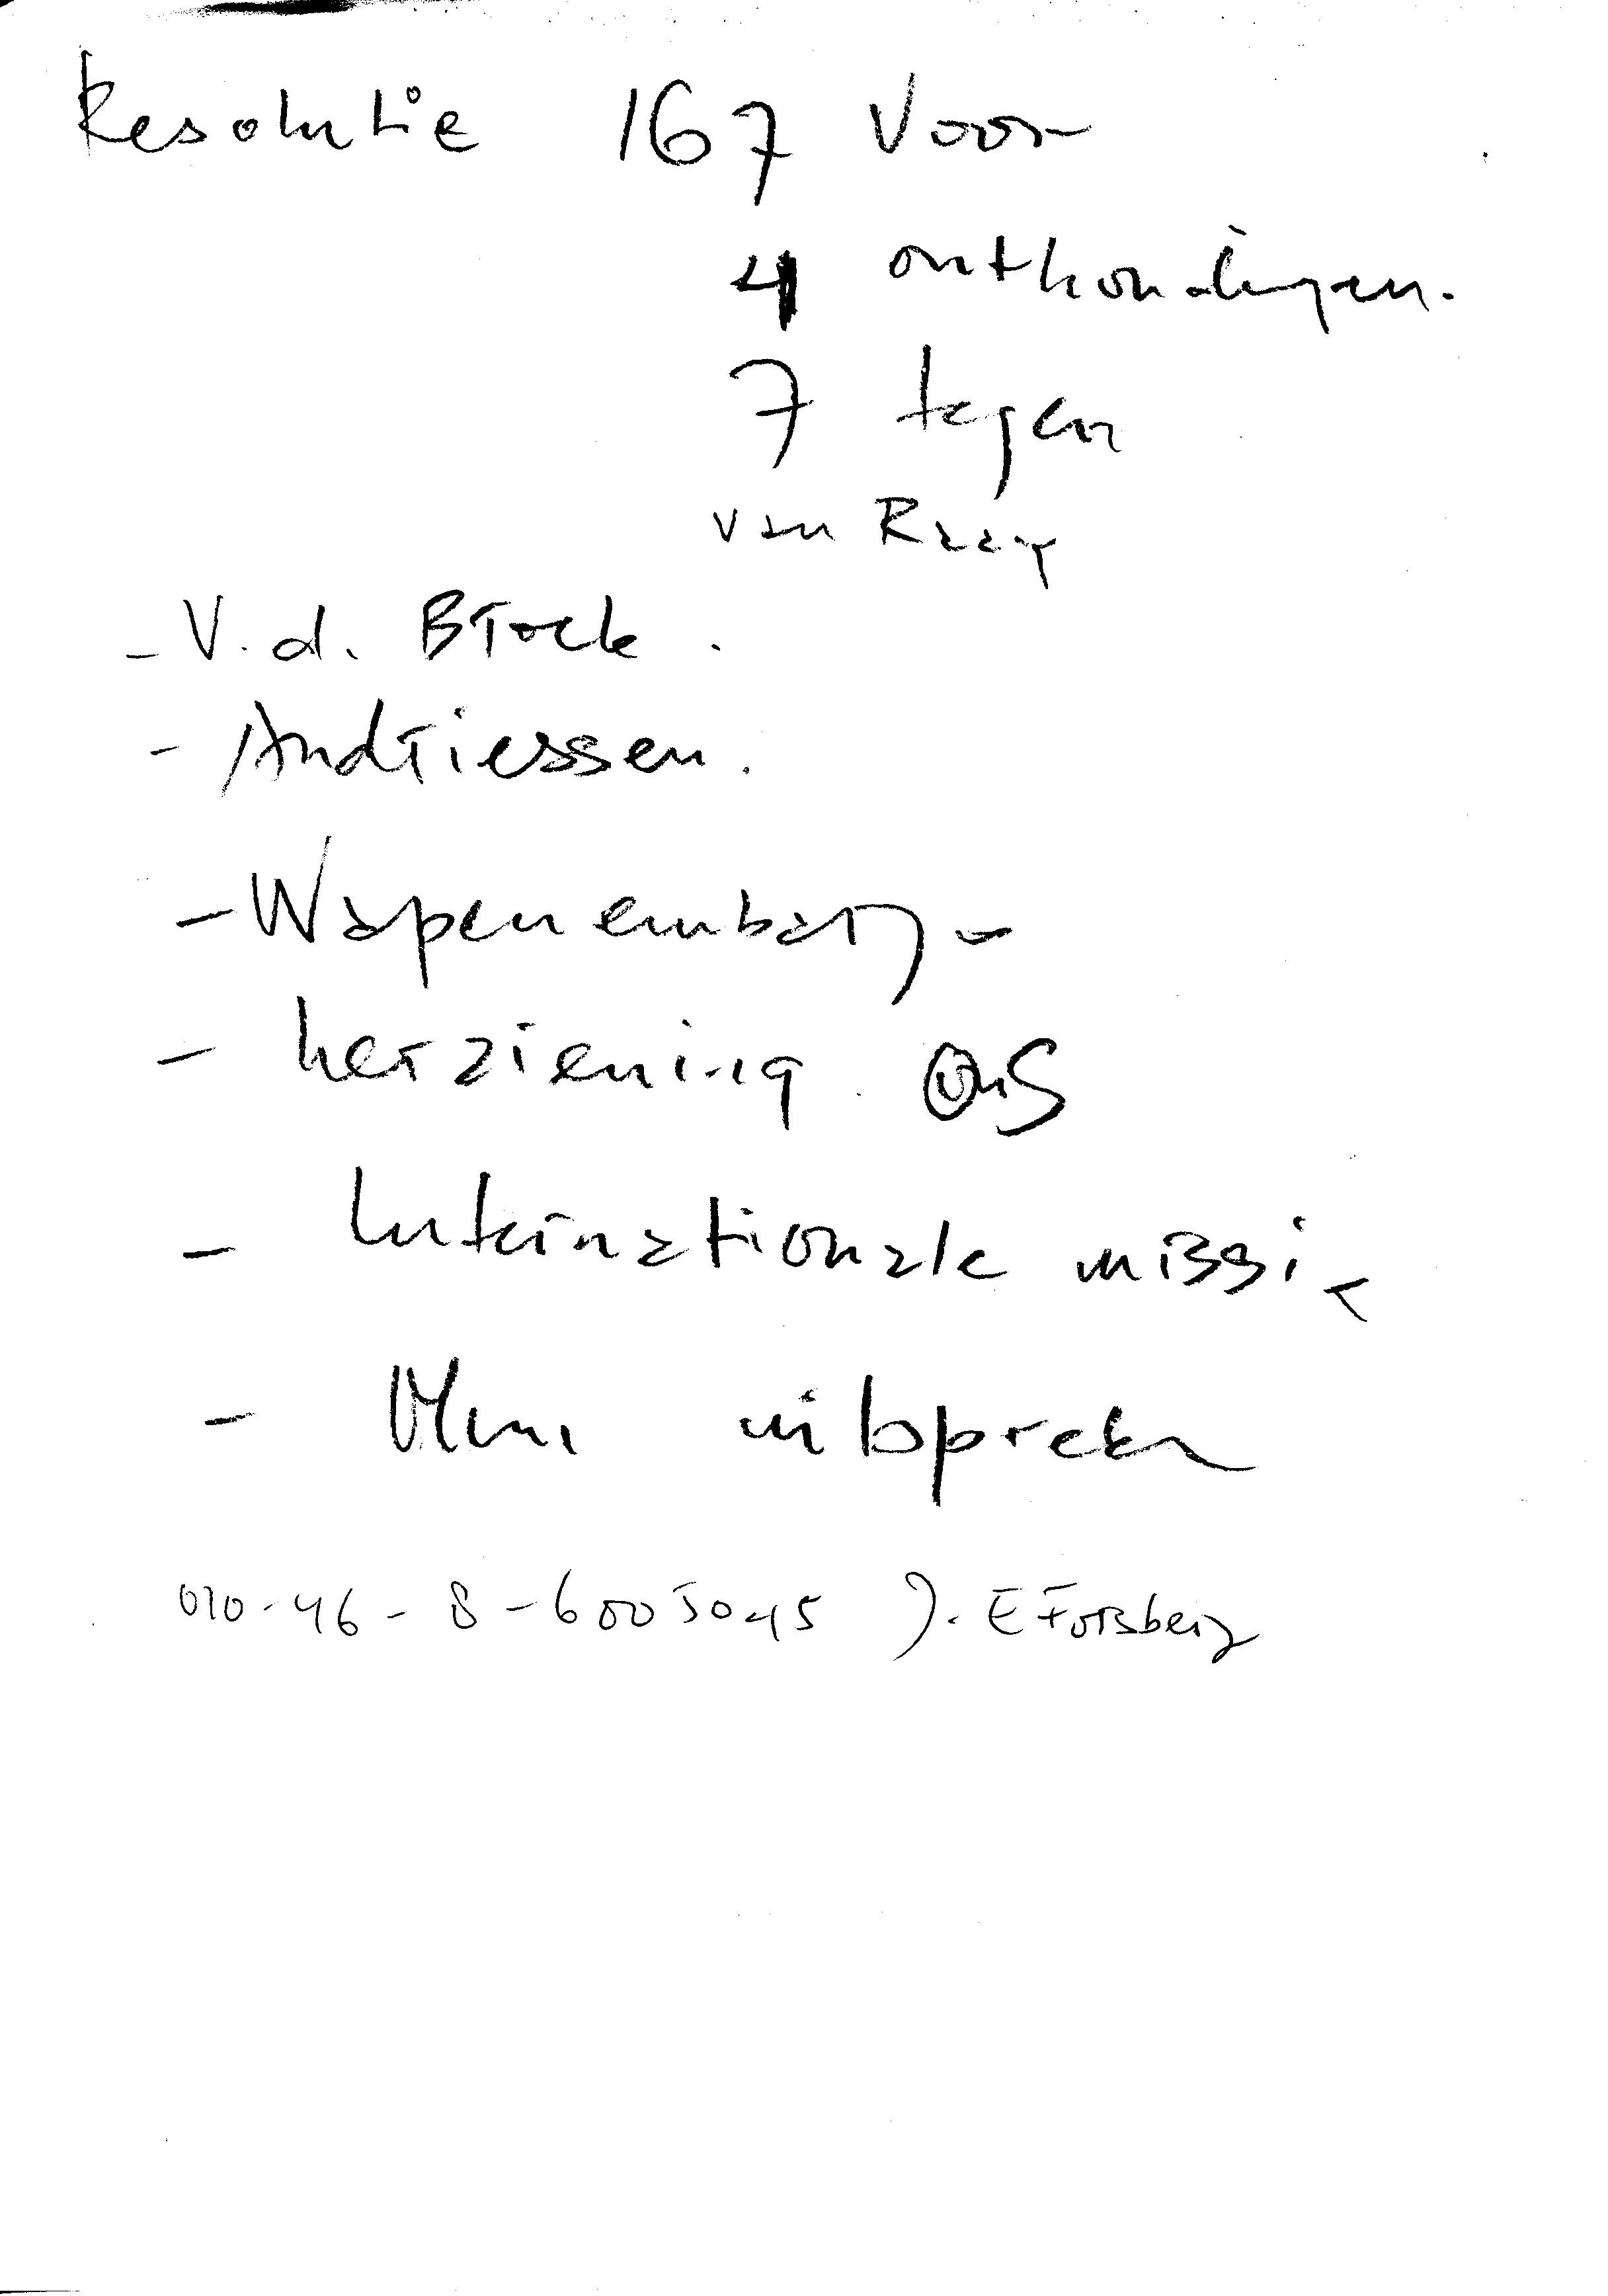 Resolutie 167 Voor
4 onthoudingen.
7 tegen
van Raay
- V.d. Broek.
- Andriessen.
- Wapenembargo
- herziening OS
- Internationale missie
- uitspreken
010-46-8-6005045 J. E Forsberg